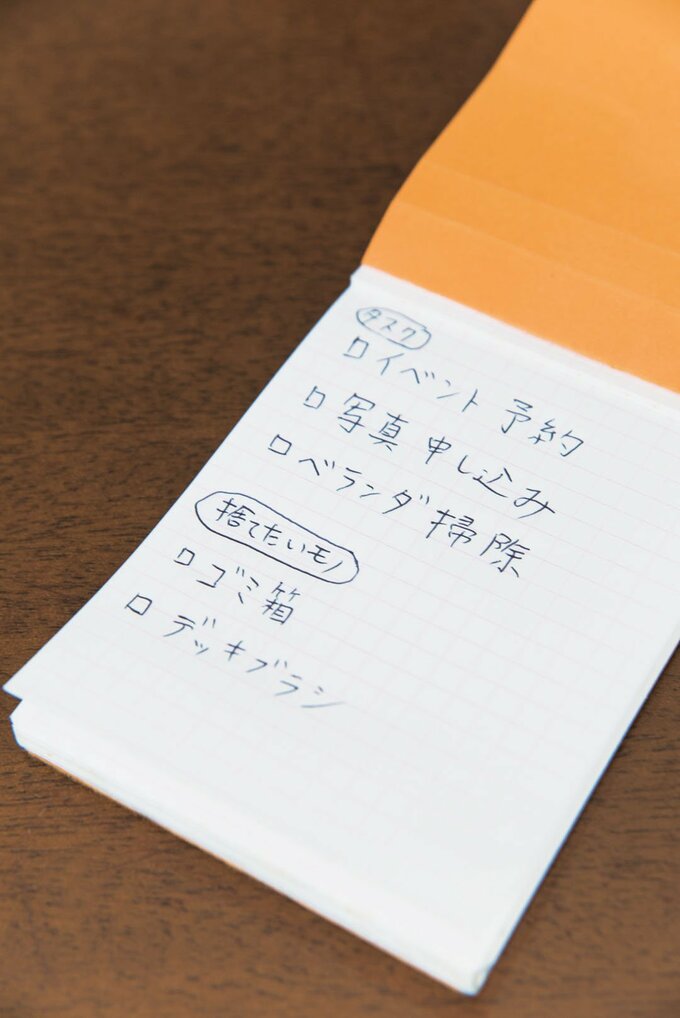 タスク
□イベント予約
□写真申し込み
□ベランダ掃除
捨てたいモノ
□ゴミ箱
□デッキブラシ